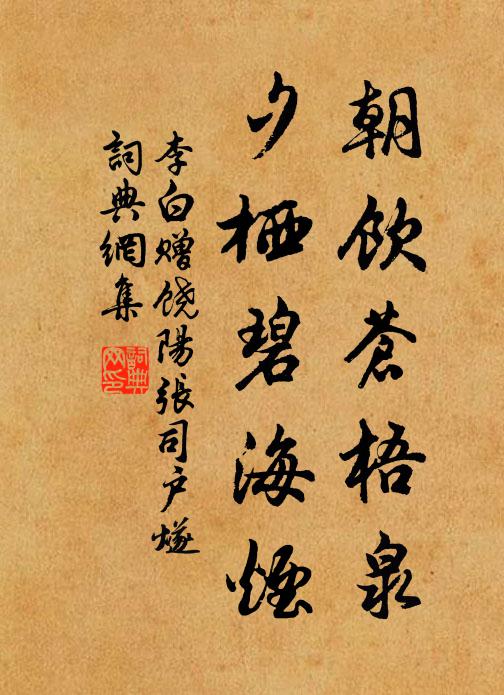 朝飲蒼梧泉
夕栖碧海煙
李白赠饶陽張司戶燧
詞典網集
詞典网印